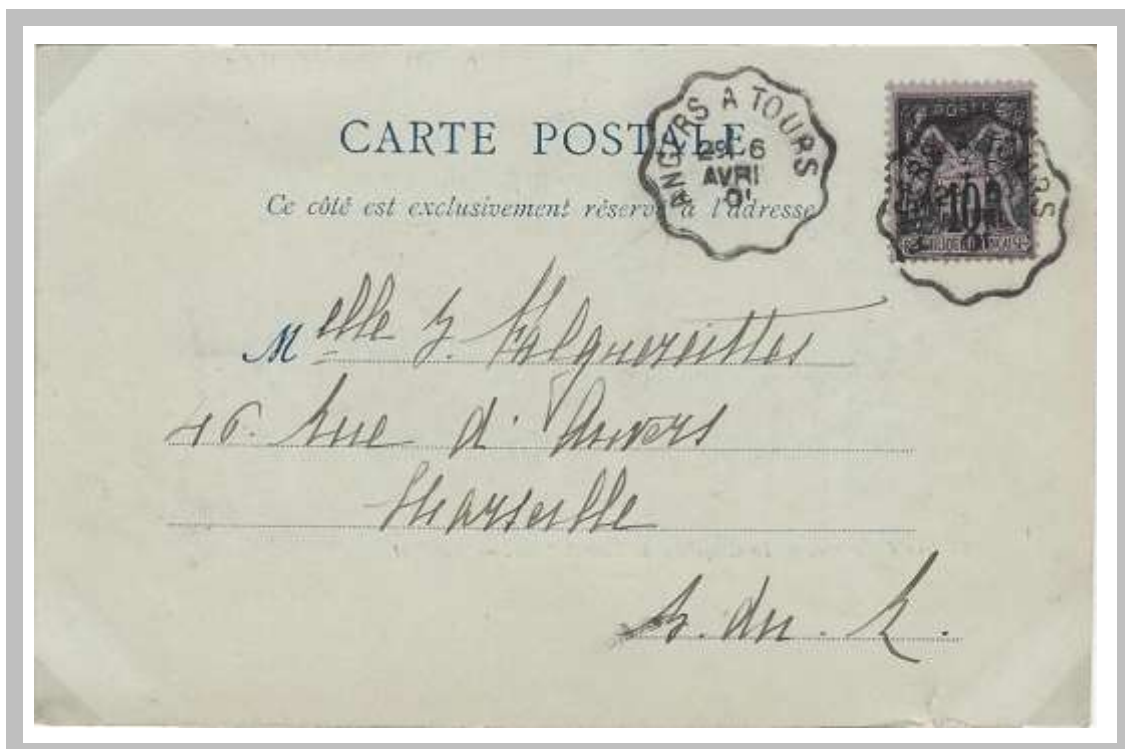 CARTE POSTALE
Ce côté est exclusivement réservé à l'adresse
ANGERS A TOURS
2º 6
AVRI
01
POSTE
10
ANGERS A TOURS
Melle
46. Rue d'Anvers
Marseille
B. du R.